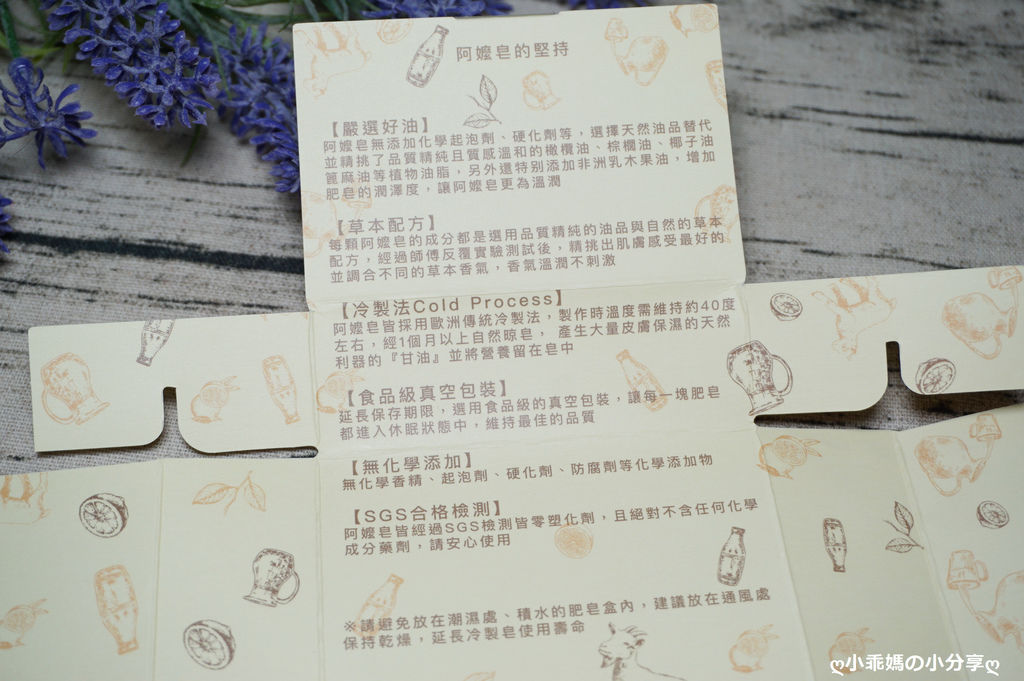 阿嬤皂的堅持
【嚴選好油】
阿嬤皂無添加化學起泡劑、硬化劑等，選擇天然油品替代
並精挑了品質精純且質感溫和的橄欖油、棕櫚油、椰子油
篦麻油等植物油脂，另外還特別添加非洲乳木果油，增加
肥皂的潤澤度，讓阿嬤皂更為溫潤
【草本配方】
每顆阿嬤皂的成分都是選用品質精純的油品與自然的草本
配方，經過師傅反覆實驗測試後，精挑出肌膚感受最好的
並調合不同的草本香氣，香氣溫潤不刺激
【冷製法Cold Process】
阿嬤皂皆採用歐洲傳統冷製法，製作時溫度需維持約40度
左右，經1個月以上自然晾皂， 產生大量皮膚保濕的天然
利器的『甘油』並將營養留在皂中
【食品級真空包裝】
延長保存期限，選用食品級的真空包裝，讓每一塊肥皂
都進入休眠狀態中，維持最佳的品質
【無化學添加】
無化學香精、起泡劑、硬化劑、防腐劑等化學添加物
【SGS合格檢測】
阿嬤皂皆經過SGS檢測皆零塑化劑，且絕對不含任何化學
成分藥劑，請安心使用
※請避免放在潮濕處、積水的肥皂盒內，建議放在通風處
保持乾燥，延長冷製皂使用壽命
ღ小乖媽の小分享ღ